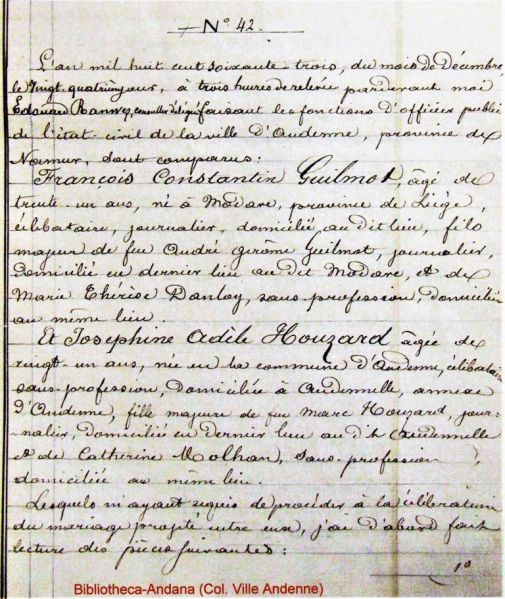 N° 42.
L'an mil huit cent soixante trois, du mois de Décembre,
le vingt-quatrième jour, à trois heures de relevée pardevant moi
Edouard Ranwez, conseiller délégué faisant les fonctions d'officier public
de l'état-civil de la ville d'Andenne, province de
Namur, sont comparus:
François Constantin Guilmot, âgé de
trente-un ans, né à Modave, province de Liége,
célibataire, journalier, domicilié au dit lieu, fils
majeur de feu André Gérôme Guilmot, journalier,
domicilié en dernier lieu au dit Modave, et de
Marie Thérèse Danloy, sans profession, domiciliée
au même lieu.
Et Josephine Adèle Houzard âgée de
vingt-un ans, née en la commune d'Andenne, célibataire
sans profession, domiciliée à Andennelle, annexe
d'Andenne, fille majeure de feu Marc Houzard, jour-
-nalier, domicilié en dernier lieu au dit Andennelle
et de Catherine Molhan, sans profession,
domiciliée au même lieu.
Lesquels m'ayant requis de procéder à la célébration
du mariage projeté entre eux, j'ai d'abord fait
lecture des pièces suivantes:
1°
Bibliotheca-Andana (Col. Ville Andenne)